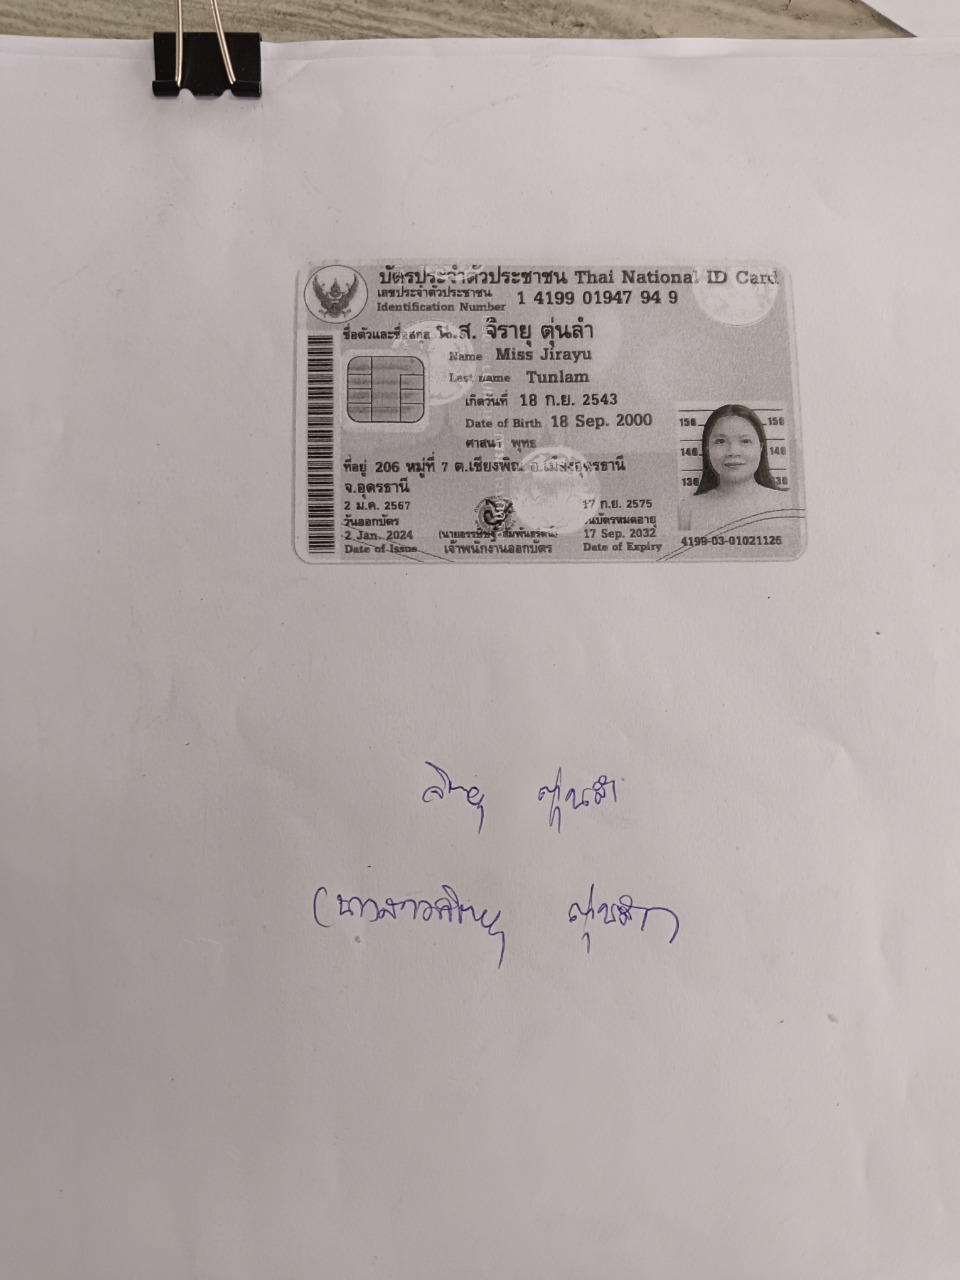 บัตรประจำตัวประชาชน Thai National ID Card
เลขประจำตัวประชาชน
Identification Number
1 4199 01947 94 9
ชื่อตัวและชื่อสกุล น.ส. จิรายุ ตุ่นลำ
Name Miss Jirayu
Last name Tunlam
เกิดวันที่ 18 ก.ย. 2543
Date of Birth 18 Sep. 2000
ศาสนา พุทธ
ที่อยู่ 206 หมู่ที่ 7 ต.เชียงพิณ อ.เมืองอุดรธานี
จ.อุดรธานี
2 ม.ค. 2567
วันออกบัตร
2 Jan. 2024
Date of Issue
เจ้าพนักงานออกบัตร
17 ก.ย. 2575
วันบัตรหมดอายุ
17 Sep. 2032
Date of Expiry
150 150
140 140
130 130
4199-03-01021126
จิรายุ ตุ่นลำ
(นางสาวจิรายุ ตุ่นลำ)